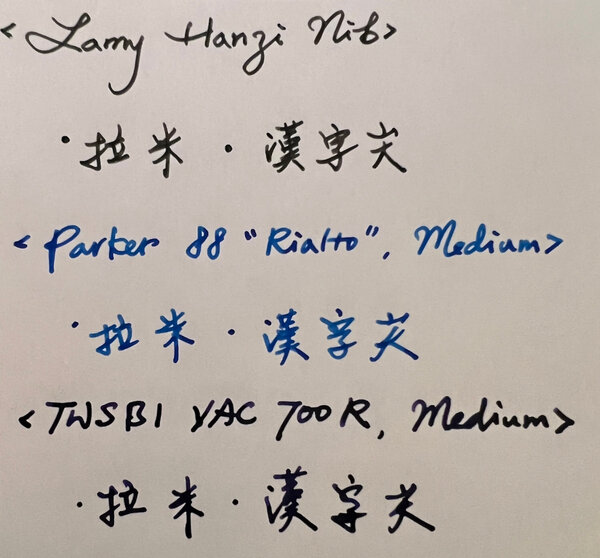 <Lamy Hanzi Nib>
·拉米·漢字尖
<Parker 88 "Rialto", Medium>
·拉米·漢字尖
<TWSBI VAC 700R, Medium>
·拉米·漢字尖